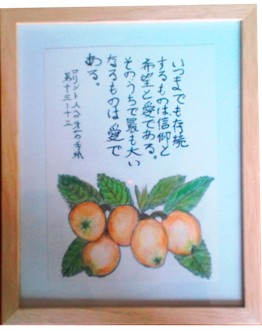 いつまでも存続
するものは信仰と
希望と愛である。
そのうちで最も大い
なるものは愛で
ある。
コリント人への第一の手紙
第十三ー十三